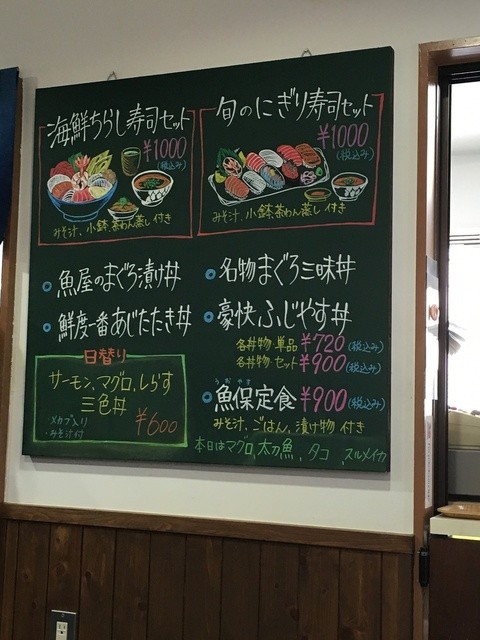 海鮮ちらし寿司セット
¥1000
(税込み)
みそ汁、小鉢、茶わん蒸し 付き
旬のにぎり寿司セット
¥1000
(税込み)
みそ汁、小鉢、茶わん蒸し 付き
魚屋のまぐろ漬け丼
鮮度一番あじたたき丼
名物まぐろ三昧丼
豪快ふじやす丼
各丼物・単品 ¥720 (税込み)
各丼物・セット ¥900 (税込み)
日替り
サーモン、マグロ、しらす
三色丼
メカブ入り
・みそ汁付
¥600
うおやす
魚保定食 ¥900 (税込み)
みそ汁、ごはん、漬け物 付き
本日はマグロ、太刀魚、タコ、スルメイカ